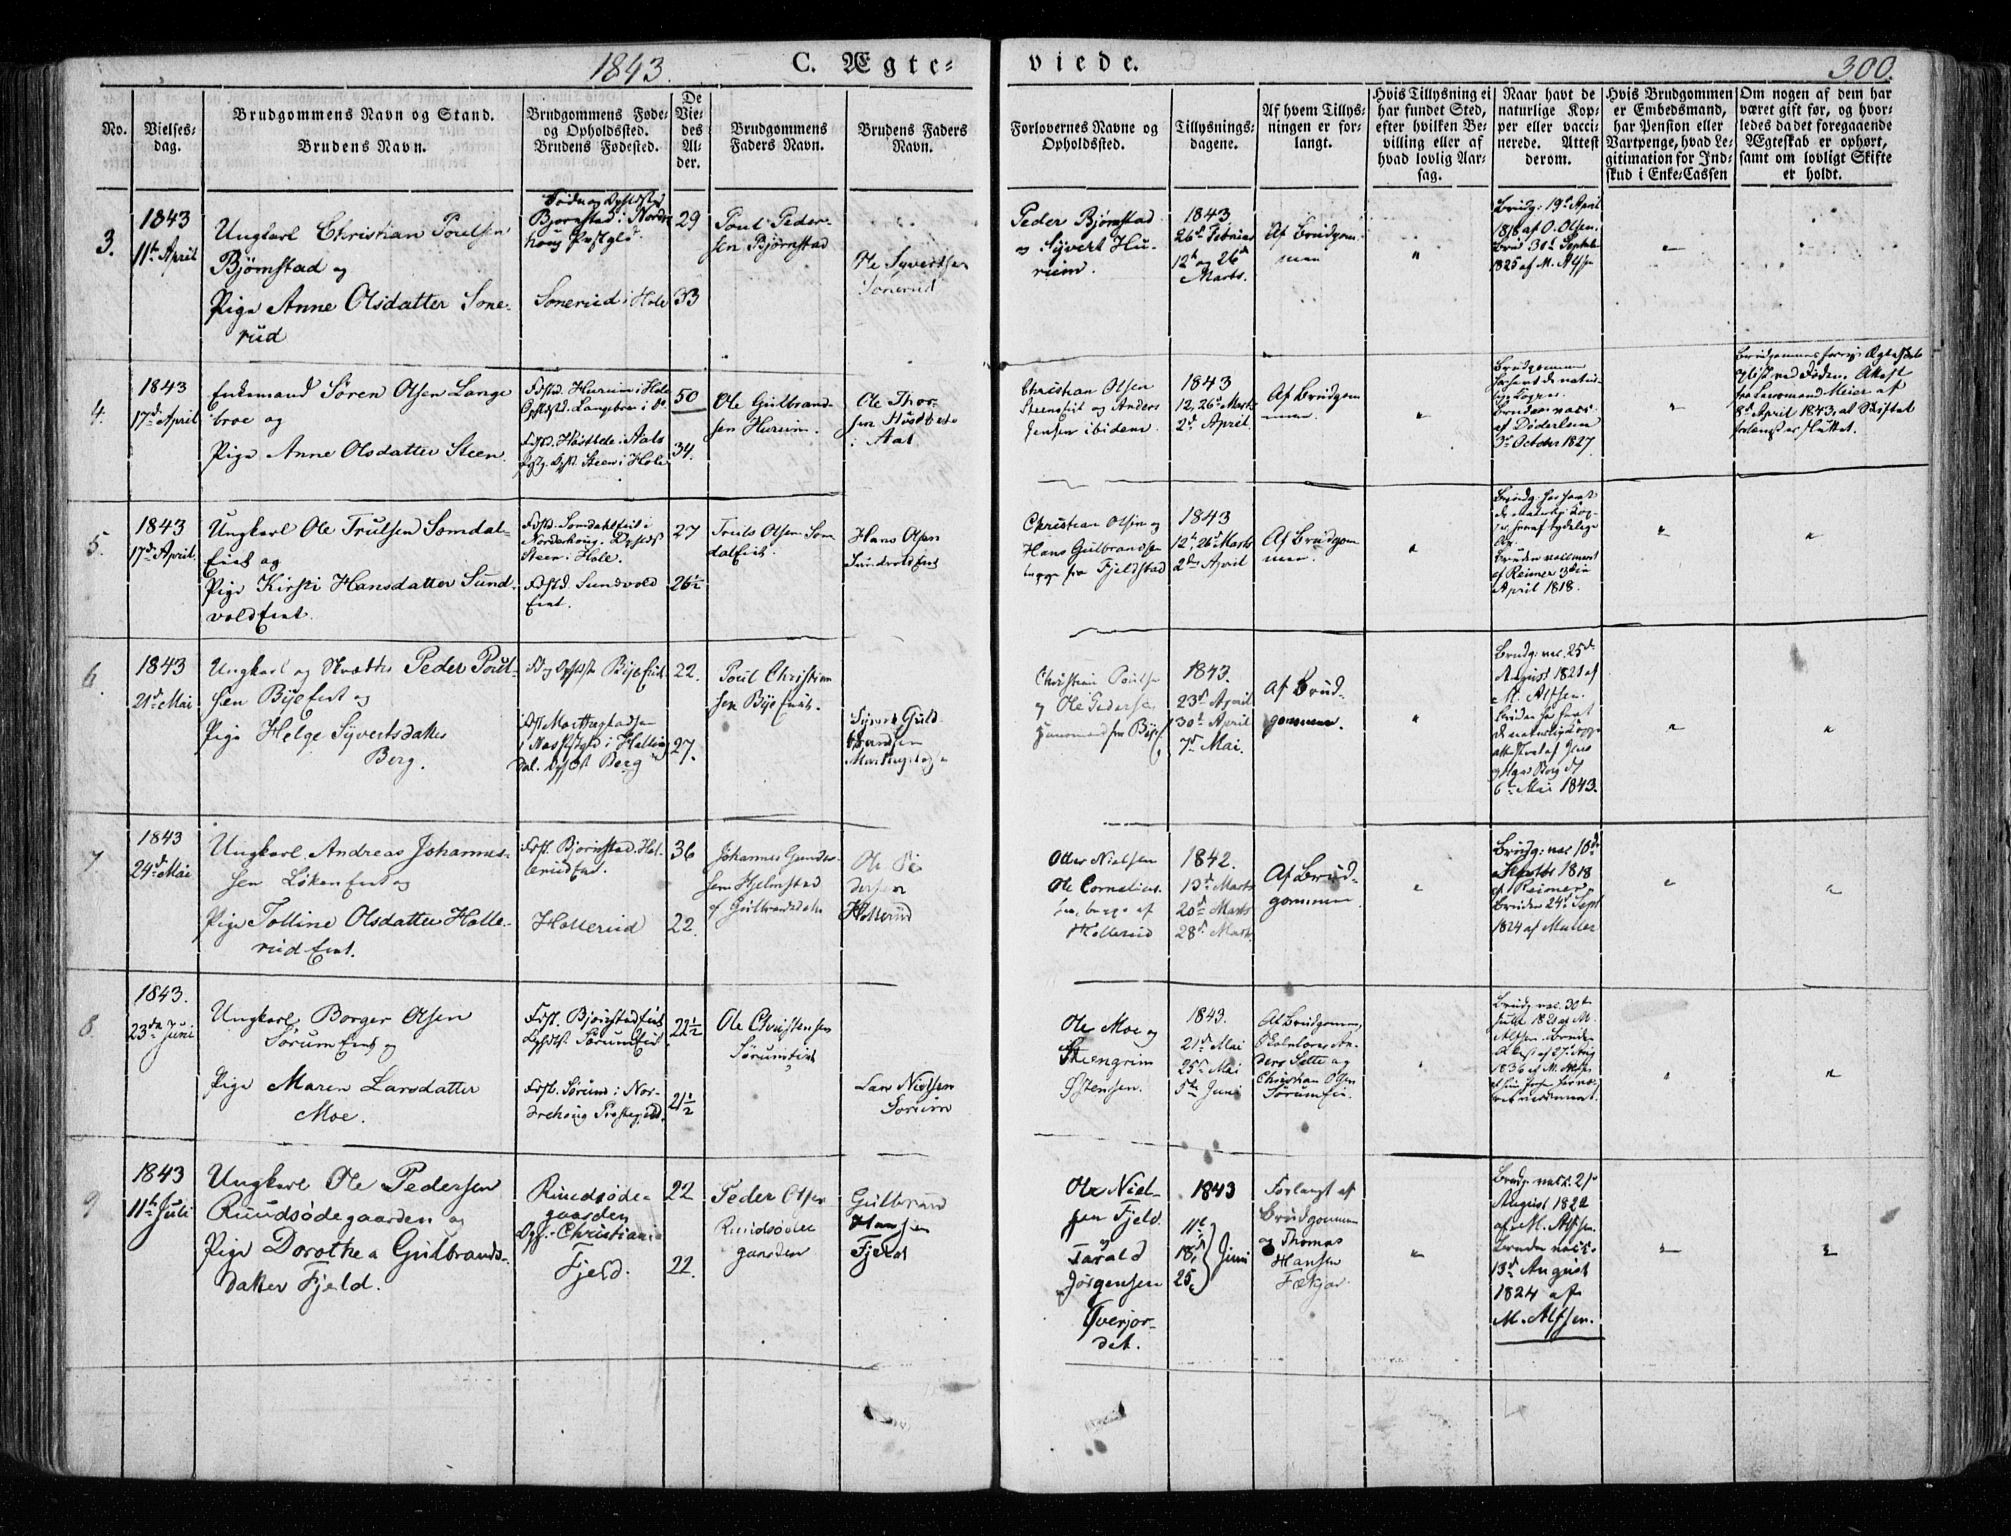 1843.
C. Ægte-
viede.
300.
No.
Vielses-
dag.
Brudgommens Navn og Stand.
Brudens Navn.
Brudgommens Føde-
og Opholdssted.
Brudens Fødested.
De
Vie-
des
Al-
der.
Brudgommens
Faders Navn.
Brudens Faders
Navn.
Forlovernes Navne og
Opholdssted.
Tillysnings-
dagene.
Af hvem Tillys-
ningen er for-
langt.
Hvis Tillysning ei
har fundet Sted,
efter hvilken Be-
villing eller af
hvad lovlig Aar-
sag.
Naar havt de
naturlige Kop-
per eller vacci-
nerede. Attest
derom.
Hvis Brudgommen
er Embedsmand,
har Pension eller
Vartpenge, hvad Le-
gitimation for Ind-
skud i Enke-Cassen
Om nogen af dem har
været gift før, og hvor-
ledes da det foregaaende
Ægteskab er ophørt,
samt om lovligt Skifte
er holdt.
3.
1843
11te April
Ungkarl Christian Poulsen
Bjørnstad og
Pige Anne Olsdatter Sone-
rud
Bjørnstad i Norde-
houg Præstgld.
Sonerud i Hole
29
33
Poul Peder-
sen Bjørnstad
Ole Syvertsen
Sonerud
Peder Bjørnstad
og Syvert Hu-
rum.
1843
26de Februar
12te og 26de
Marts.
Af Brudgom-
men
Brudg: 19de April
1818 af O. Olsen.
Brud 30te Septebr
1825 af M. Alfsen
4.
1843
17de April
Enkemand Søren Olsen Lange
broe og
Pige Anne Olsdatter Steen.
Fdstd. Hurum i Hole
Ophstd. Langebroe i do
50
34.
Ole Gulbrand-
sen Hurum.
Ole Thor-
sen
i Aal
Christian Olsen
og Anders
Jensen ibidem.
1843
12, 26de Marts
2de April
Af Brudgom-
men.
Brudgommen
Brudens vacc.
af Døderlein
3de October 1827
8de April 1843, at Skiftet
forlængst er sluttet.
5.
1843
17de April.
Ungkarl Ole Trulsen Somdal-
Eiet og
Pige Kirsti Hansdatter Sund-
vold Eiet.
Fdstd. Somdahlseiet i
Norderhoug. Ophstd
Steen i Hole.
Fdstd. Sundvold
Eiet.
27
26½
Truls Olsen Som
dalEiet.
Hans Olsen
SundvoldEiet
Christian Olsen og
Hans Gulbrandsen
begge fra Fjeldstad
1843
12te, 26de Marts
2den April
Af Brudgom
men.
af Reimer 3die
April 1818.
6.
1843
21de Mai
Ungkarl og Peder Poul-
sen Bye Eiet og
Pige Helge Syvertsdatter
Berg.
Fd og Ophst Bye Eiet
dal. Ophst Berg
22.
27.
Poul Christian
sen Bye Eiet.
Syvert Guld-
brandsen
Christian Poulse
og Ole Pedersen
1843.
23de April
30te April
7de Mai.
Af Brud-
gommen.
Brudg: vac. 25de
August 1821 af
M. Alfsen.
6te Mai 1843.
7
1843
24de Mai
Ungkarl Andreas Johannes-
sen LøkenEiet og
Pige Tolline Olsdatter Holle-
rud Eiet.
Fdst. Bjørnstad. Hol-
lerudEiet.
Hollerud
36
22.
Johannes Gunder-
sen Hjelmstad
af Gulbrandsdalen
Ole Pe
dersen
Hollerud
Otter Nielsen
Ole Cornelius-
sen, begge af
Hollerud
1842.
13de Marts
20de Marts
28de Marts.
Af Brud-
gommen
Brudg: vac 10de
1818
af Reimer
Bruden 24de Sept
1824 af Muller
8.
1843.
23de Juni
Ungkarl Borger Olsen
Sørum Eiet og
Pige Maren Larsdatter
Moe.
Fdst. BjørnstadEiet
Ophdst. SørumEiet
Fdst. Sørum i Nor-
drehoug Præstegjeld.
22½
21½
Ole Christensen
SørumEiet
Lars Nielsen
Sørum
Ole Moe og
Steengrim
Østensen.
1843.
21de Mai
25de Mai
5te Juni
Af Brudgommen,
An-
ders Sette og
Christian Olsen
SørumEie.
Brudg. vac. 30te
Juli 1821 af M.
Alfsen. Brudens
Attest af 27de Aug
1836 af M. Alfsen
9
1843
11te Juli
Ungkarl Ole Pedersen
Ruudsødegaarden og
Pige Dorothea Gulbrands-
datter Fjeld.
Ruudsøde-
gaarden
Oph. Christiania
Fjeld.
22
22.
Peder Olsen
Ruudsøde
gaarden
Gulbrand
Hansen
Fjeld
Ole Niel-
sen Fjeld
og
Tarald
Jørgensen
Tverjor-
det.
1843
11te
18de
25.
Juni
Forlangt af
Brudgommen
og Thomas
Hansen
Fækjær.
Brudg. vacc. 21de
August 1822
af M. Alfsen.
Bruden vacc.
13de August
1824 af
M. Alfsen.